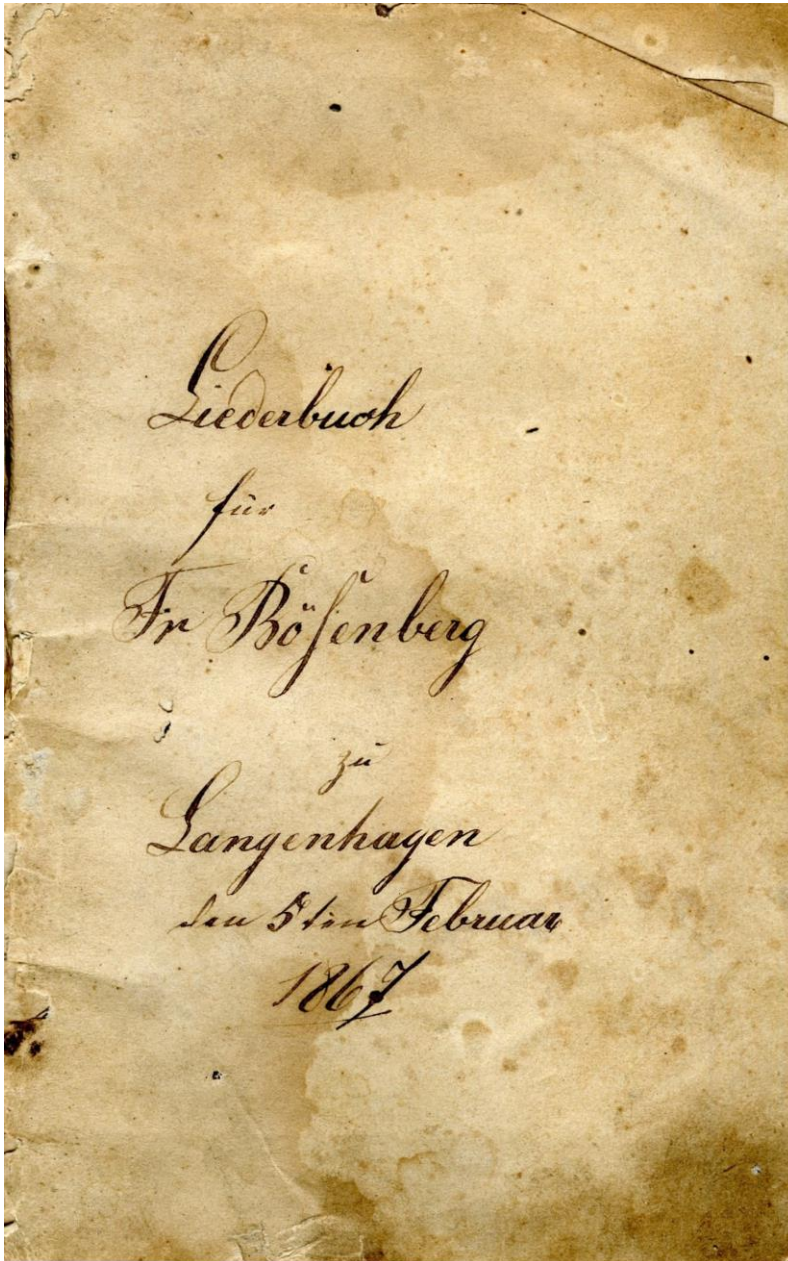 Liederbuch
für
Fr Bösenberg
zu
Langenhagen
den 5ten Februar
1867